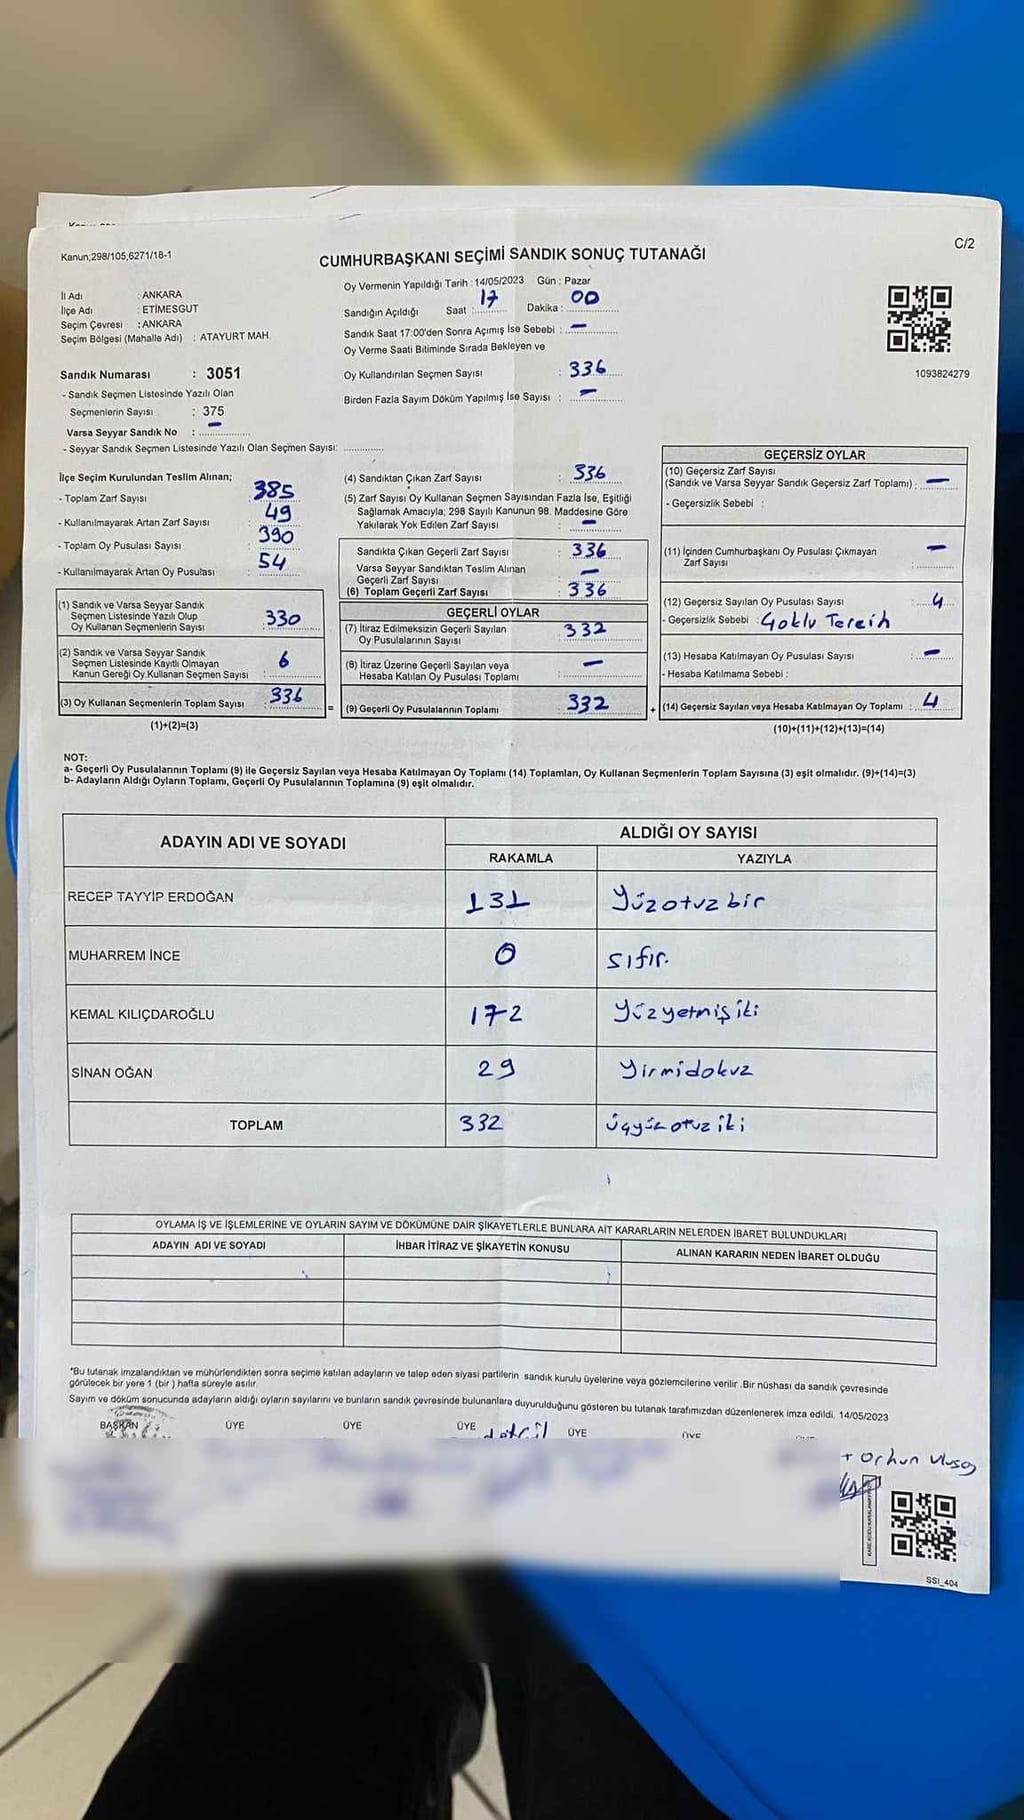 Kanun;298/105,6271/18-1
C/2
CUMHURBAŞKANI SEÇİMİ SANDIK SONUÇ TUTANAĞI
İl Adı : ANKARA
İlçe Adı : ETİMESGUT
Seçim Çevresi : ANKARA
Seçim Bölgesi (Mahalle Adı) : ATAYURT MAH.
Sandık Numarası : 3051
- Sandık Seçmen Listesinde Yazılı Olan
Seçmenlerin Sayısı : 375
Varsa Seyyar Sandık No : —
- Seyyar Sandık Seçmen Listesinde Yazılı Olan Seçmen Sayısı:
Oy Vermenin Yapıldığı Tarih : 14/05/2023 Gün : Pazar
Sandığın Açıldığı Saat : 17 Dakika : 00
Sandık Saat 17:00'den Sonra Açımış İse Sebebi : —
Oy Verme Saati Bitiminde Sırada Bekleyen ve
Oy Kullandırılan Seçmen Sayısı : 336
Birden Fazla Sayım Döküm Yapılmış İse Sayısı : —
1093824279
İlçe Seçim Kurulundan Teslim Alınan;
- Toplam Zarf Sayısı : 385
- Kullanılmayarak Artan Zarf Sayısı : 49
- Toplam Oy Pusulası Sayısı : 390
- Kullanılmayarak Artan Oy Pusulası : 54
(1) Sandık ve Varsa Seyyar Sandık
Seçmen Listesinde Yazılı Olup
Oy Kullanan Seçmenlerin Sayısı : 330
(2) Sandık ve Varsa Seyyar Sandık
Seçmen Listesinde Kayıtlı Olmayan
Kanun Gereği Oy Kullanan Seçmen Sayısı : 6
(3) Oy Kullanan Seçmenlerin Toplam Sayısı : 336
(1)+(2)=(3)
=
(4) Sandıktan Çıkan Zarf Sayısı : 336
(5) Zarf Sayısı Oy Kullanan Seçmen Sayısından Fazla İse, Eşitliği
Sağlamak Amacıyla; 298 Sayılı Kanunun 98. Maddesine Göre
Yakılarak Yok Edilen Zarf Sayısı : —
Sandıkta Çıkan Geçerli Zarf Sayısı : 336
Varsa Seyyar Sandıktan Teslim Alınan
Geçerli Zarf Sayısı : —
(6) Toplam Geçerli Zarf Sayısı : 336
GEÇERLİ OYLAR
(7) İtiraz Edilmeksizin Geçerli Sayılan
Oy Pusulalarının Sayısı : 332
(8) İtiraz Üzerine Geçerli Sayılan veya
Hesaba Katılan Oy Pusulası Toplamı : —
(9) Geçerli Oy Pusulalarının Toplamı : 332
+
GEÇERSİZ OYLAR
(10) Geçersiz Zarf Sayısı
(Sandık ve Varsa Seyyar Sandık Geçersiz Zarf Toplamı) : —
- Geçersizlik Sebebi :
(11) İçinden Cumhurbaşkanı Oy Pusulası Çıkmayan
Zarf Sayısı : —
(12) Geçersiz Sayılan Oy Pusulası Sayısı : 4
- Geçersizlik Sebebi : Çoklu Tercih
(13) Hesaba Katılmayan Oy Pusulası Sayısı : —
- Hesaba Katılmama Sebebi :
(14) Geçersiz Sayılan veya Hesaba Katılmayan Oy Toplamı : 4
(10)+(11)+(12)+(13)=(14)
NOT:
a- Geçerli Oy Pusulalarının Toplamı (9) ile Geçersiz Sayılan veya Hesaba Katılmayan Oy Toplamı (14) Toplamları, Oy Kullanan Seçmenlerin Toplam Sayısına (3) eşit olmalıdır. (9)+(14)=(3)
b- Adayların Aldığı Oyların Toplamı, Geçerli Oy Pusulalarının Toplamına (9) eşit olmalıdır.
ADAYIN ADI VE SOYADI ALDIĞI OY SAYISI
RAKAMLA YAZIYLA
RECEP TAYYİP ERDOĞAN 131 Yüzotuzbir
MUHARREM İNCE 0 sıfır.
KEMAL KILIÇDAROĞLU 172 Yüzyetmişiki
SİNAN OĞAN 29 Yirmidokuz
TOPLAM 332 üçyüzotuziki
OYLAMA İŞ VE İŞLEMLERİNE VE OYLARIN SAYIM VE DÖKÜMÜNE DAİR ŞİKAYETLERLE BUNLARA AİT KARARLARIN NELERDEN İBARET BULUNDUKLARI
ADAYIN ADI VE SOYADI İHBAR İTİRAZ VE ŞİKAYETİN KONUSU ALINAN KARARIN NEDEN İBARET OLDUĞU
*Bu tutanak imzalandıktan ve mühürlendikten sonra seçime katılan adayların ve talep eden siyasi partilerin sandık kurulu üyelerine veya gözlemcilerine verilir .Bir nüshası da sandık çevresinde
görülecek bir yere 1 (bir ) hafta süreyle asılır.
Sayım ve döküm sonucunda adayların aldığı oyların sayılarını ve bunların sandık çevresinde bulunanlara duyurulduğunu gösteren bu tutanak tarafımızdan düzenlenerek imza edildi. 14/05/2023
BAŞKAN ÜYE ÜYE ÜYE ÜYE ÜYE
+ Orhun Ulusoy
SSI_404